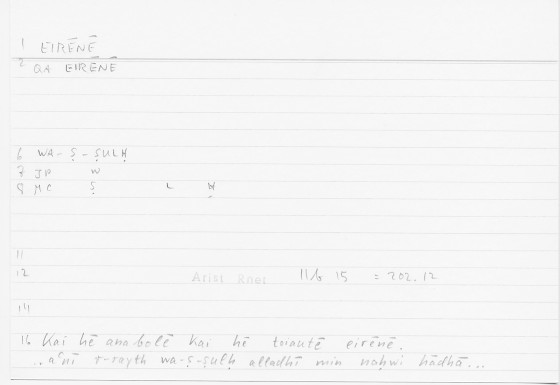 1 EIRĒNĒ
2 QA EIRĒNĒ
6 WA-Ṣ-ṢULḤ
7 JP W
8 MC Ṣ L Ḥ
11
12 Arist Rhet 11b 15 = 202.12
14
16 Kai hē anabolē kai hē toiautē eirēnē.
..aʿnī r-rayth wa-ṣ-ṣulḥ alladhī min naḥwi hādhā...